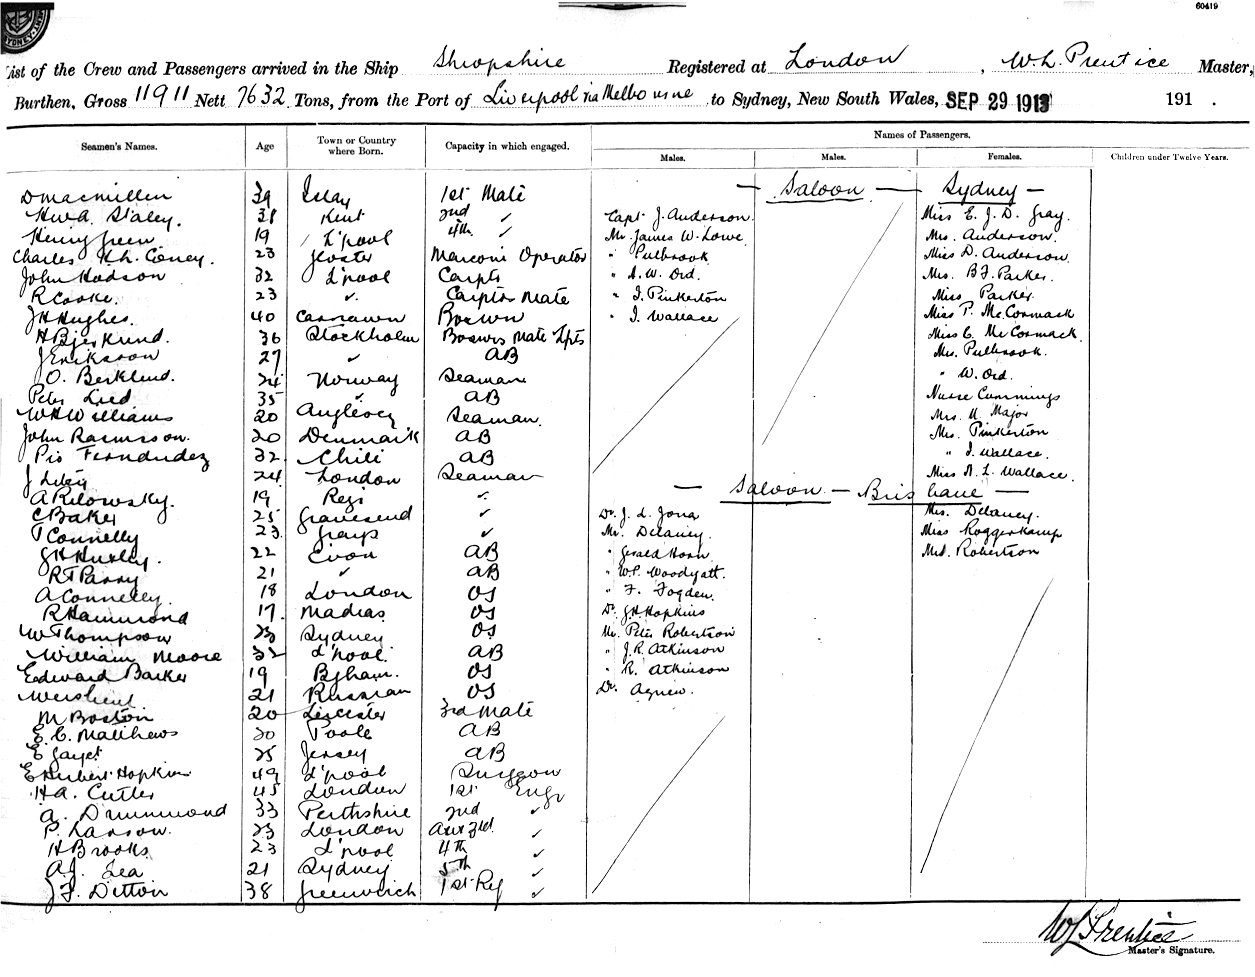 60419
SYDNEY
ist of the Crew and Passengers arrived in the Ship Shropshire Registered at London, W. L. Prentice Master,
Burthen, Gross 11911 Nett 7632 Tons, from the Port of Liverpool via Melbourne to Sydney, New South Wales, SEP 29 1913 191 .
Seamen's Names. Age Town or Country where Born. Capacity in which engaged. Names of Passengers.
Males. Males. Females. Children under Twelve Years.
— Saloon — Sydney —
D Macmillen 39 Islay 1st Mate
Staley. 31 Kent 2nd ✓ Capt J. Anderson Miss E. J. D. Gray.
Henry Green 19 L'pool 4th ✓ Mr James W. Lowe Mrs. Anderson
Charles H. L. Coney. 23 Marconi Operator " Pulbrook Miss D. Anderson
John Hodson 32 L'pool Carptr " A. W. Ord. Mrs. B J Parker.
R Cooke. 23 ✓ Carptrs Mate " J. Pinkerton Miss Parker
JH Hughes. 40 Bosswn " J. Wallace Miss P. McCormack
H 36 Stockholm Boswns Mate Miss C. McCormack
J Eriksson 27 ✓ AB Mrs. Pulbrook.
O. Berklund. 24 Norway Seaman " W. Ord.
Peter 35 ✓ AB Nurse Cummings
WH Williams 20 Anglesey Seaman. Mrs. M Major
John Rasmusson. 20 Denmark AB Mrs. Pinkerton
Pio Fernandez 32 Chili AB " J. Wallace.
J 24 London Seaman Miss N. L. Wallace.
— Saloon — Brisbane —
A Rilowsky. 19 ✓
C Baker 25 Gravesend ✓ Dr. J. L. Jona Mrs. Delaney.
T Connelly 23 Grays ✓ Mr. Delaney. Miss Roggenkamp
JH Huxley. 22 AB " Gerald Horn Mrs. Robertson
RT Parry 21 ✓ AB " W.P. Woodyatt.
A Connelly. 18 London OS " F. Fogden.
R Hammond 17 Madras OS Dr. J.H. Hopkins
W Thompson 23 Sydney OS Mr. Peter Robertson
William Moore 32 L'pool AB " J. R. Atkinson
Edward Barker 19 B'ham. OS " R. Atkinson
21 Russian OS Dr. Agnew.
M Boston 20 Leicester 3rd Mate
E. C. Matthews 20 Poole AB
E 25 Jersey AB
E Herbert Hopkins 49 L'pool Surgeon
H A. Cutler 45 London 1st Engr
A. Drummond 33 Perthshire 2nd ✓
P. Lawson. 23 London Aux 3rd ✓
H Brooks 23 L'pool 4th ✓
A.J. Lea 21 Sydney 5th ✓
J F. Ditton 38 Greenwich 1st Ref ✓
W L Prentice
Master's Signature.